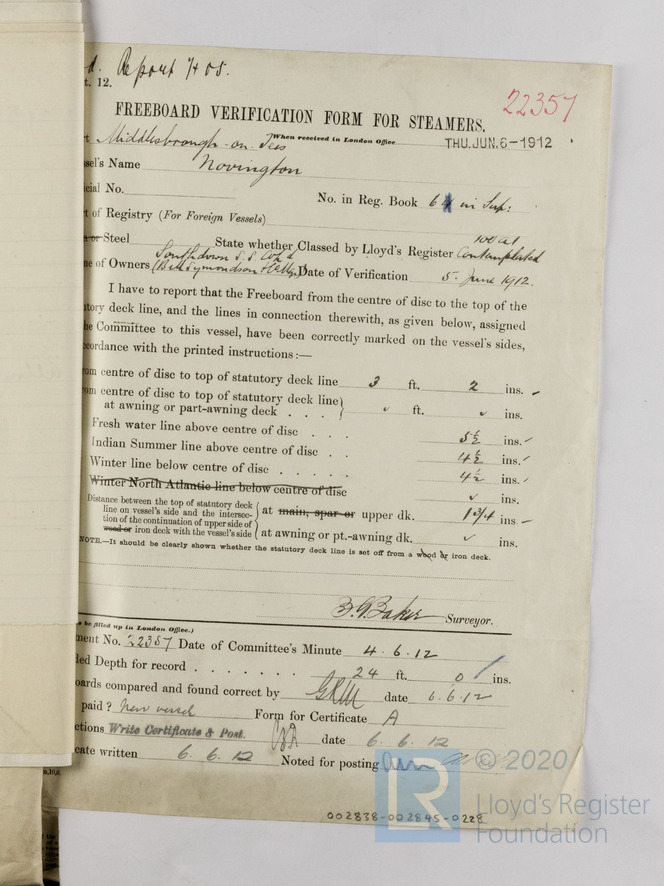 d. Report 7405.
t. 12.
22357
FREEBOARD VERIFICATION FORM FOR STEAMERS.
t Middlesbrough-on-Tees When received in London Office THU. JUN. 6-1912
ssel's Name Novington
cial No. No. in Reg. Book 64 in Sup:
t of Registry (For Foreign Vessels)
n or Steel State whether Classed by Lloyd's Register 100 A1 Contemplated
me of Owners Southdown S.S. Co Ld (Bell Symondson & Co) Date of Verification 5. June 1912.
I have to report that the Freeboard from the centre of disc to the top of the
utory deck line, and the lines in connection therewith, as given below, assigned
he Committee to this vessel, have been correctly marked on the vessel's sides,
ccordance with the printed instructions :—
om centre of disc to top of statutory deck line 3 ft. 2 ins.
om centre of disc to top of statutory deck line
at awning or part-awning deck . . . ft. ins.
Fresh water line above centre of disc . . . 5½ ins.
Indian Summer line above centre of disc . . 4½ ins.
Winter line below centre of disc . . . . . 4½ ins.
Winter North Atlantic line below centre of disc ins.
Distance between the top of statutory deck
line on vessel's side and the intersec-
tion of the continuation of upper side of
wood or iron deck with the vessel's side
at main, spar or upper dk. 1¾ ins.
at awning or pt.-awning dk. ins.
NOTE.—It should be clearly shown whether the statutory deck line is set off from a wood or iron deck.
Baker Surveyor.
o be filled up in London Office.)
ment No. 22357 Date of Committee's Minute 4.6.12
led Depth for record . . . . . . . 24 ft. 0 ins.
oards compared and found correct by date 6.6.12
paid? New vessel Form for Certificate A
ctions Write Certificate & Post. date 6.6.12
cate written 6.6.12 Noted for posting
002838-002845-0228
LR © 2020
Lloyd's Register
Foundation